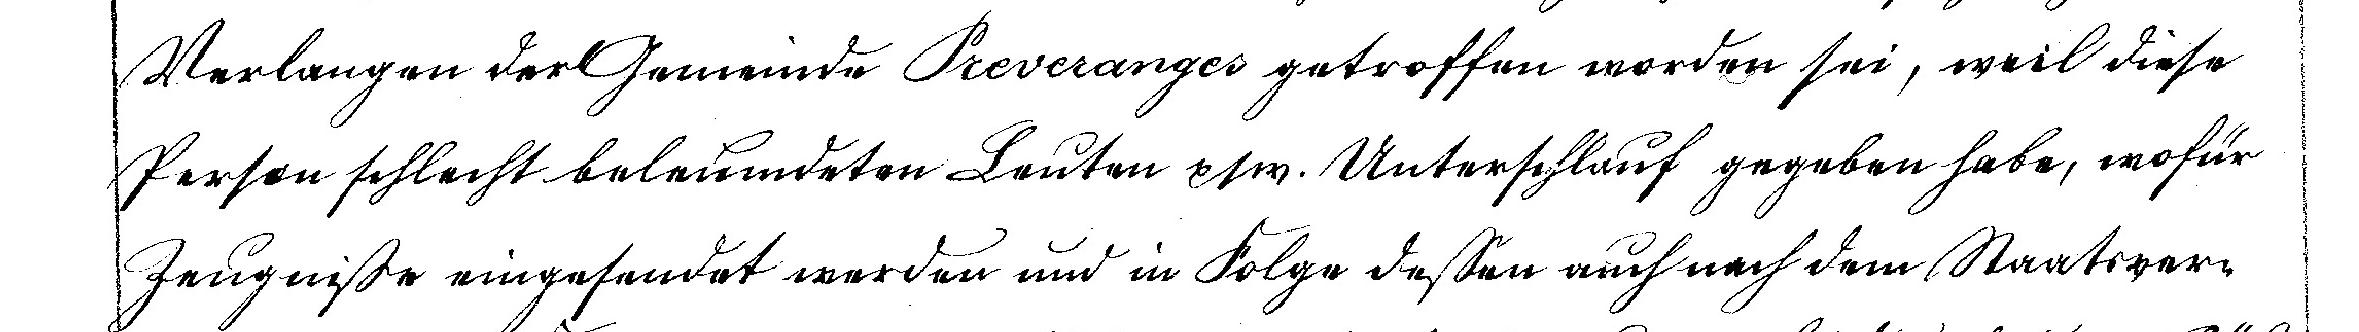 Verlangen der Gemeinde Preveranges getroffen worden sei, weil diese
Person schlecht beleumdeten Leuten etc. Unterschlauf gegeben habe, wofür
Zeugniße eingesendet werden und in Folge deßen auch nach dem Staatsver-